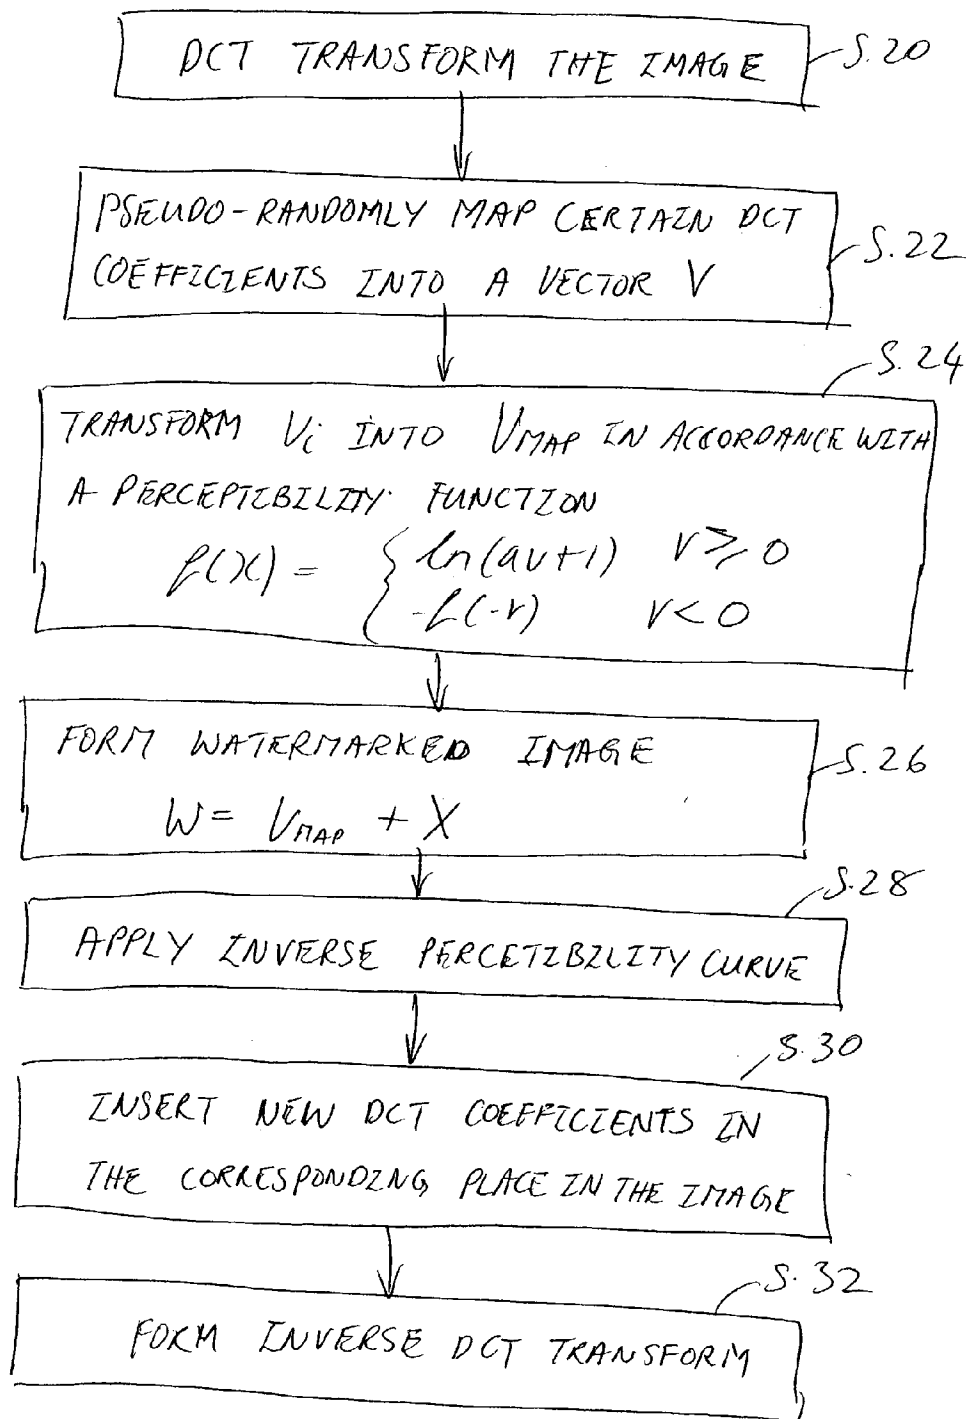 DCT TRANSFORM THE IMAGE
S.20
PSEUDO-RANDOMLY MAP CERTAIN DCT
COEFFICIENTS INTO A VECTOR V
S.22
S.24
TRANSFORM Vi INTO VMAP IN ACCORDANCE WITH
A PERCEPTIBILITY FUNCTION
f(x) = { ln(av+1) v ≥ 0
-f(-v) v < 0
FORM WATERMARKED IMAGE
S.26
W = VMAP + X
S.28
APPLY INVERSE PERCETIBILITY CURVE
S.30
INSERT NEW DCT COEFFICIENTS IN
THE CORRESPONDING PLACE IN THE IMAGE
S.32
FORM INVERSE DCT TRANSFORM